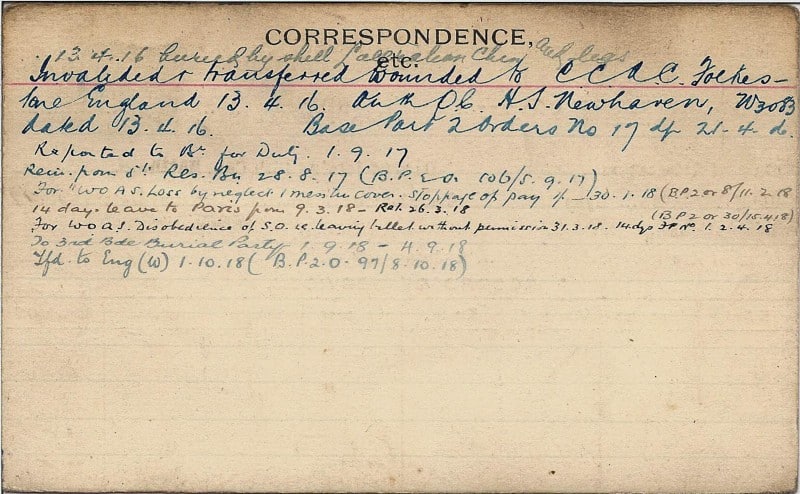 CORRESPONDENCE,
etc.
13.4.16 buried by shell Laceration Chin and legs
Invalided & transferred wounded to C.C.A.C. Folkes-
tone England 13.4.16. Auth O/C. H.S. Newhaven, W3083
dated 13.4.16. Base Part 2 Orders No 17 of 21.4.16.
Reported to Bn for Duty. 1.9.17
Rein. from 5th Res. Bn 28.8.17 (B.P.2.O. 106/5.9.17)
For WOAS. Loss by neglect 1 mess tin cover. Stoppage of pay 30.1.18 (B.P.2 or 8/11.2.18
14 days leave to Paris from 9.3.18 - Ret. 26.3.18
(BP2 or 30/15.4.18)
For WOAS. Disobedience of S.O. i.e. leaving billet without permission 31.3.18. 14 dys FP No 1. 2.4.18
To 3rd Bde Burial Party 1.9.18 - 4.9.18
Tfd. to Eng (W) 1.10.18 (B.P.2.O. 97/8.10.18)